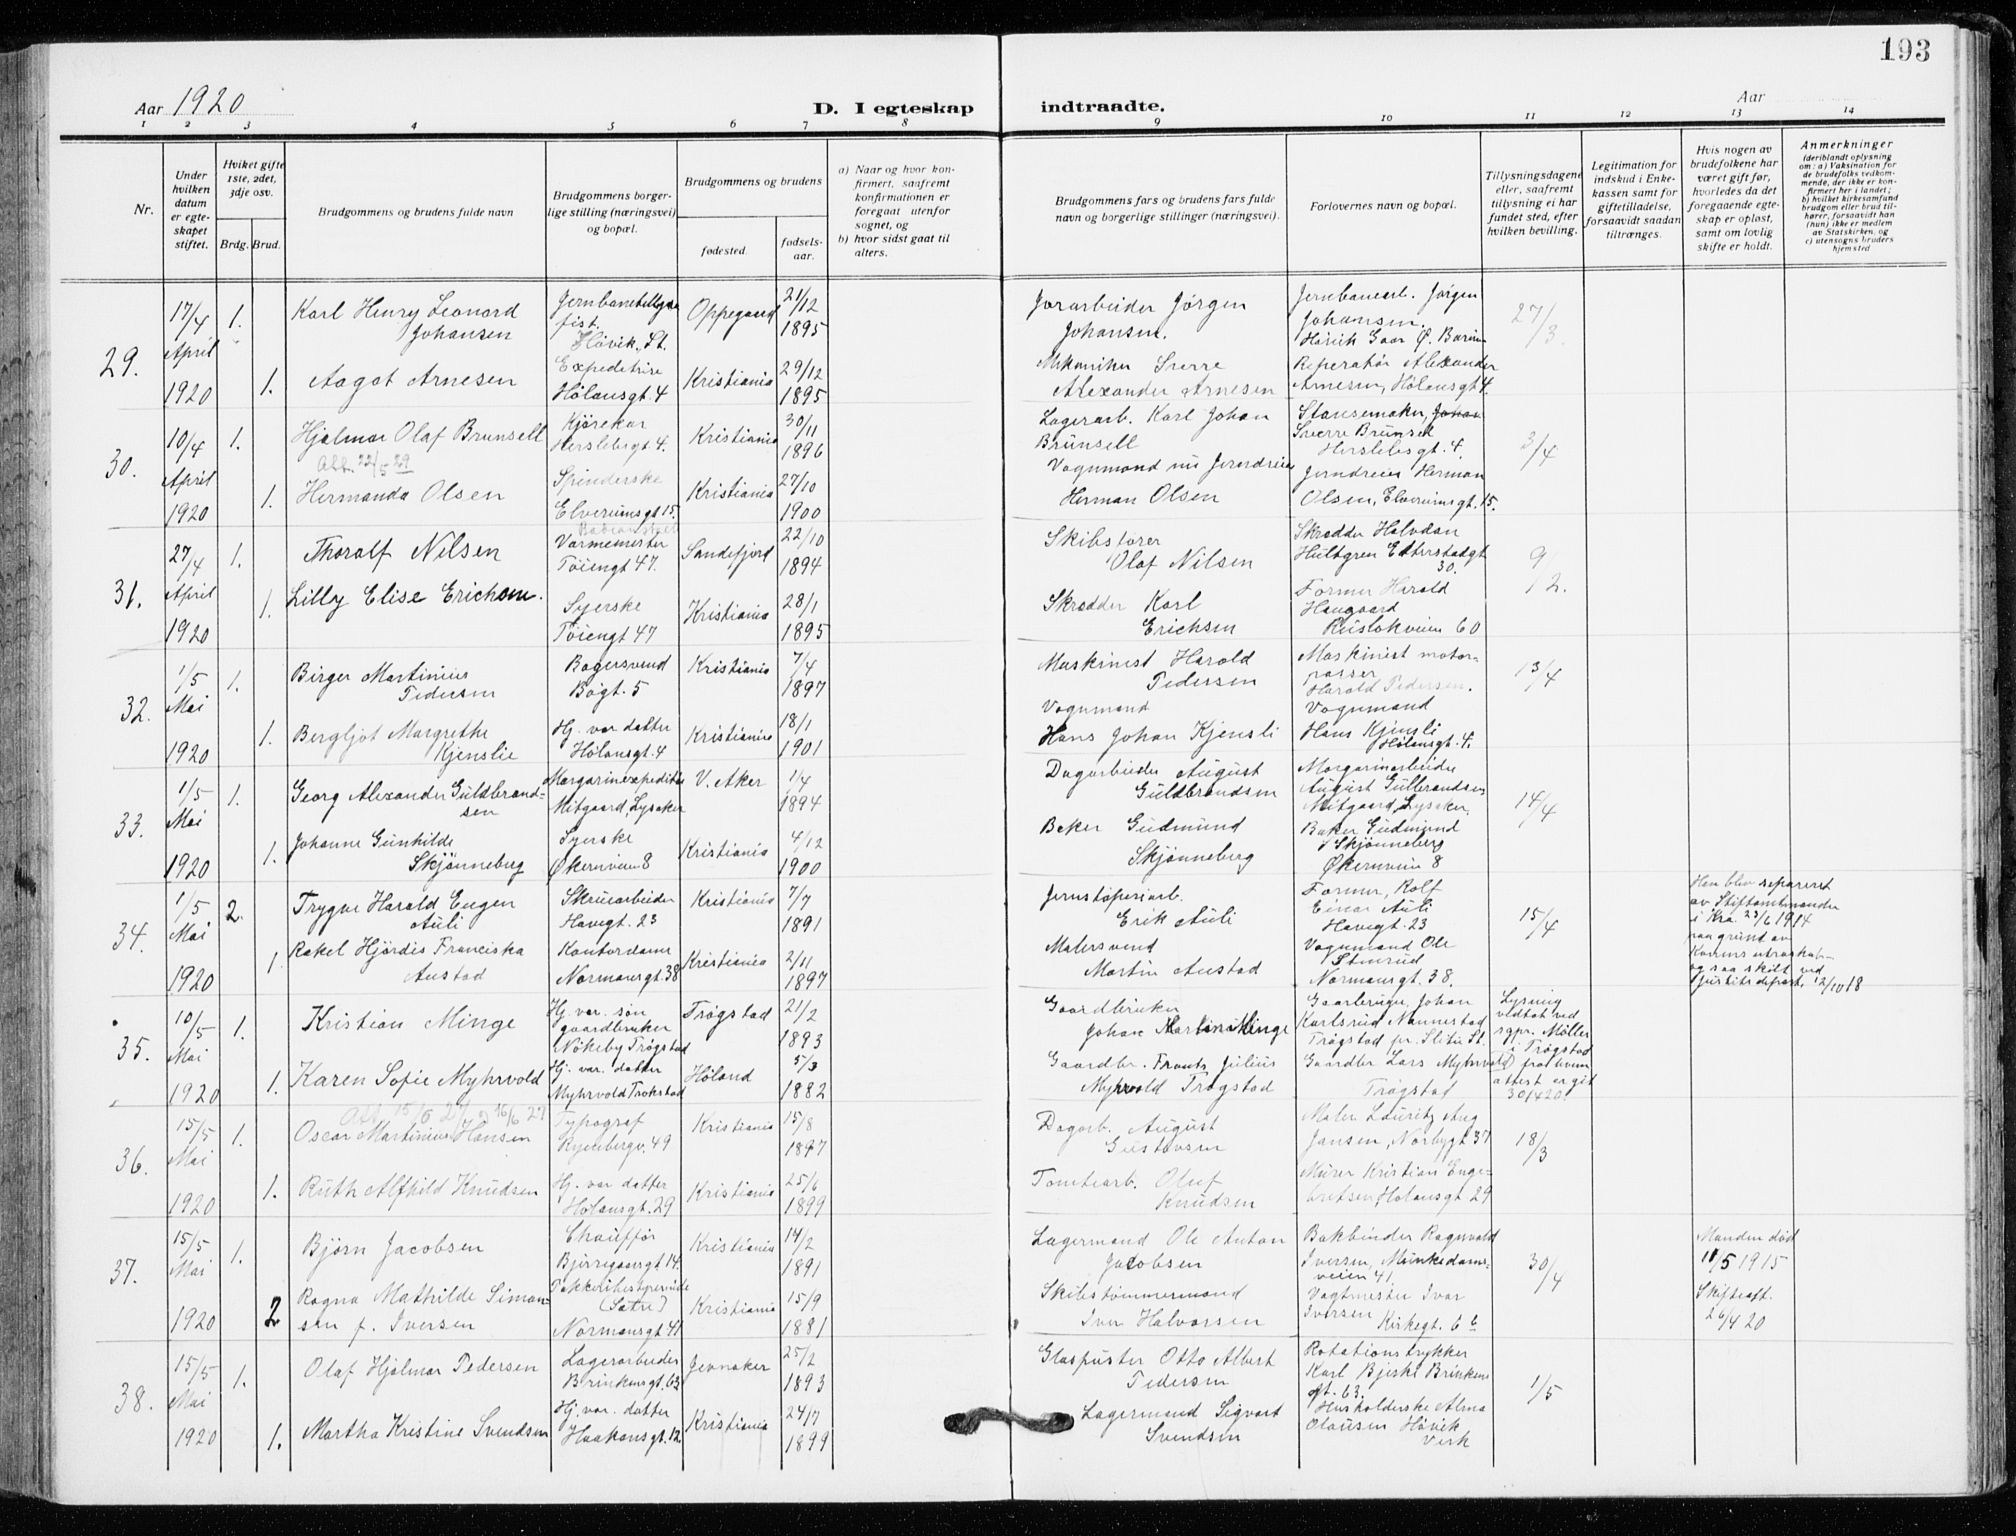 193
Aar 1920
D. I egteskap indtraadte.
Aar
1 2 3 4 5 6 7 8 9 10 11 12 13 14
Nr.
Under hvilken datum er egteskapet stiftet.
Hvilket gifte 1ste, 2det, 3dje osv.
Brdg. Brud.
Brudgommens og brudens fulde navn
Brudgommens borgerlige stilling (næringsvei) og bopæl.
Brudgommens og brudens
fødested. fødselsaar.
a) Naar og hvor konfirmert, saafremt konfirmationen er foregaat utenfor sognet, og
b) hvor sidst gaat til alters.
Brudgommens fars og brudens fars fulde navn og borgerlige stillinger (næringsvei).
Forlovernes navn og bopæl.
Tillysningsdagene eller, saafremt tillysning ei har fundet sted, efter hvilken bevilling.
Legitimation for indskud i Enkekassen samt for giftetilladelse, forsaavidt saadan tiltrænges.
Hvis nogen av brudefolkene har været gift før, hvorledes da det foregaaende egteskap er opløst, samt om lovlig skifte er holdt.
Anmerkninger
(deriblandt oplysning om: a) Vaksination for de brudefolks vedkommende, der ikke er konfirmert her i landet; b) hvilket kirkesamfund brudgom eller brud tilhører, forsaavidt han (hun) ikke er medlem av Statskirken, og c) utensogns bruders hjemsted
29. 17/4 April 1920
1. Karl Henry Leonard Johansen
Høvik St. Oppegaard 21/12 1895
Jordarbeider Jørgen Johansen.
Jernbanearb. Jørgen Johansen. Høvik
27/3
1. Aagot Arnesen
Expeditrise Hølansgt. 4 Kristiania 29/12 1895
Mekaniker Sverre Alexander Arnesen
Reperatør Alexander Arnesen, Hølansgt 4.
30. 10/4 April 1920
1. Hjalmar Olaf Brunsell
Att. 22/5 29
Kjørekar Herslebsgt 4. Kristiania 30/11 1896
Lagerarb. Karl Johan Brunsell
Stansemaker, Johan Sverre Brunsell Herslebsgt. 4.
3/4
1. Hermanda Olsen
Spinderske Elverumsgt 15. Kristiania 27/10 1900
Vognmand nu Jerndreier Herman Olsen
Jerndreier Herman Olsen, Elverumsgt. 15.
31. 27/4 April 1920
1. Thoralf Nilsen
Varmemester Tøiengt 47. Sandefjord 22/10 1894
Skibsfører Olaf Nilsen
Skrædder Halvdan Hultgren Etterstadgt 30.
9/12.
1. Lilly Elise Erichsen.
Syerske Tøiengt 47 Kristiania 28/1 1895
Skrædder Karl Erichsen
Former Harald Haugaard Ruslokveien 60
32. 1/5 Mai 1920
1. Birger Martinius Pedersen
Bagersvend Bøgt. 5 Kristiania 7/4 1897
Maskinist Harald Pedersen
Maskinist motorpasser Harald Pedersen.
13/4
1. Bergljot Margrethe Kjenslie
Hj. vær. datter Hølansgt. 4 Kristiania 18/1 1901
Vognmand Hans Johan Kjensli
Vognmand Hans Kjensli Hølansgt. 4.
33. 1/5 Mai 1920
1. Georg Alexander Guldbrandsen
Margarinexpeditør Mitgaard, Lysaker V. Aker 1/4 1894
Dagarbeider August Guldbrandsen
Margarinarbeider August Gulbrandsen Mitgaard, Lysaker.
14/4
1. Johanne Gunhilde Skjønneberg
Syerske Økernveien 8 Kristiania 4/12 1900
Baker Gudmund Skjønneberg
Baker Gudmund Skjønneberg Økernveien 8
34. 1/5 Mai 1920
2. Trygve Harald Eugen Auli
Skruearbeider Havegt. 23 Kristiania 7/7 1891
Jernstøperiarb. Erik Auli
Former, Rolf Einar Auli Havegt. 23
15/4
Han blev separeret av Stiftamtmanden i Kra. 23/6 1914 paa grund av
og saa skilt ved Justitsdepart. 12/10 18
1. Rakel Hjørdis Franciska Austad
Kontordame Normansgt. 38 Kristiania 2/11 1897
Malersvend Martin Austad
Vognmand Ole Stensrud Normansgt. 38.
35. 10/5 Mai 1920
1. Kristian Minge
Hj. vær. søn gaardbruker Nøkeby Trøgstad Trøgstad 21/2 1893
Gaardbruker Johan Martin Minge
Gaarbruger, Johan Karlsrud Nannestad Trøgstad pr. Slitu St.
Lysning vidtat ved sgpr. Møller i Trøgstad fra hvem attest er git 30/4 20
1. Karen Sofie Myhrvold
Hj. vær. datter Myhrvold Trøkstad Høland 5/3 1882
Gaardbr. Frants Julius Myhrvold Trøgstad
Gaardbr Lars Myhrvold Trøgstad
36. 15/5 Mai 1920
1. Oscar Martinius Hansen
Typograf Ryenbergv. 49 Kristiania 15/8 1897
Dagarb. August Gustavsen
Maler Lauritz Aug Jansen, Norbygt 37
18/3
1. Ruth Alfhild Knudsen
Hj. vær datter Hølansgt. 29 Kristiania 25/6 1899
Tomtearb. Oluf Knudsen
Murer Kristian Engebretsen, Hølansgt 29
37. 15/5 Mai 1920
1. Bjørn Jacobsen
Chauffør Bjerregaardsgt 14. Kristiania 14/2 1891
Lagermand Ole Anton Jacobsen
Bokbinder Ragnvald Iversen, Munkedamsveien 41.
30/4
Manden død 11/5 1915
Skifteatt. 26/4 20
2 Ragna Mathilde Simonsen f. Iversen
Pakkeribestyrerinde (Sætre) Normansgt 41 Kristiania 15/9 1881
Skibstømmermand Iver Halvorsen
Vagtmester Ivar Iversen Kirkegt. 6 b
38. 15/5 Mai 1920
1. Olaf Hjalmar Pedersen
Lagerarbeider Brinkensgt. 63 Jevnaker 25/2 1893
Glaspuster Otto Albert Pedersen
Rotationstrykker Karl Bjerke Brinkensgt. 63.
1/5
1. Martha Kristine Svendsen
Hj. vær. datter Haakonsgt. 12 Kristiania 24/7 1899
Lagermand Sigvart Svendsen
Husholderske Alma Olausen Høvik Verk